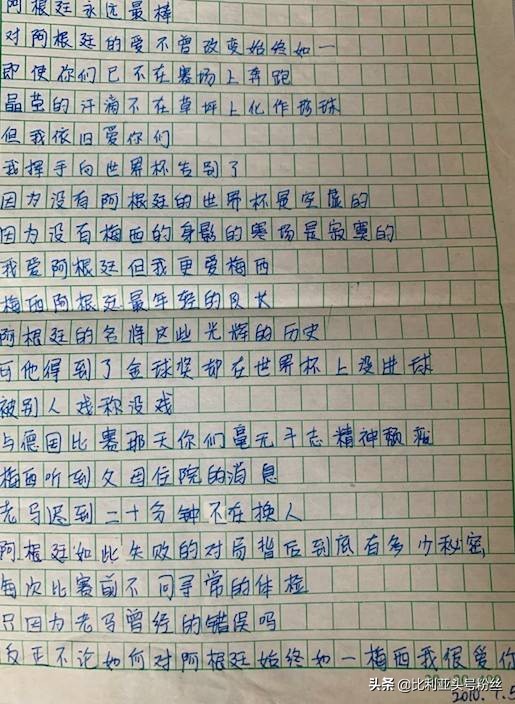 阿根廷永远最棒
对阿根廷的爱不曾改变始终如一
即使你们已不在赛场上奔跑
晶莹的汗滴不在草坪上化作珍珠
但我依旧爱你们
我挥手向世界杯告别了
因为没有阿根廷的世界杯是空虚的
因为没有梅西的身影的赛场是寂寞的
我爱阿根廷但我更爱梅西
梅西阿根廷最年轻的队长
阿根廷的名将这些光辉的历史
可他得到了金球奖却在世界杯上没进球
被别人戏称没戏
与德国比赛那天你们毫无斗志精神颓废
梅西听到父因住院的消息
老马迟到二十分钟不在换人
阿根廷如此失败的对局背后到底有多少秘密
每次比赛前不同寻常的体检
只因为老马曾经的错误吗
反正不论如何对阿根廷始终如一梅西我很爱你
头条 @比利亚头号粉丝
2010.7.5